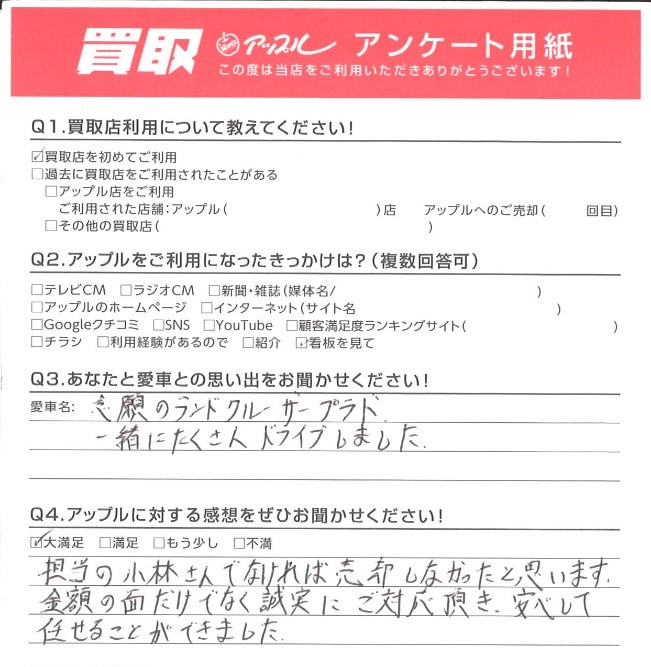 買取 アップル アンケート用紙
この度は当店をご利用いただきありがとうございます！
Q1.買取店利用について教えてください！
☑買取店を初めてご利用
□過去に買取店をご利用されたことがある
□アップル店をご利用
ご利用された店舗：アップル（　　　）店　アップルへのご売却（　　回目）
□その他の買取店（　　　）
Q2.アップルをご利用になったきっかけは？（複数回答可）
□テレビCM □ラジオCM □新聞・雑誌（媒体名/　　　）
□アップルのホームページ □インターネット（サイト名　　　）
□Googleクチコミ □SNS □YouTube □顧客満足度ランキングサイト（　　　）
□チラシ □利用経験があるので □紹介 ☑看板を見て
Q3.あなたと愛車との思い出をお聞かせください！
愛車名： 念願のランドクルーザープラド.
一緒にたくさんドライブしました.
Q4.アップルに対する感想をぜひお聞かせください！
☑大満足 □満足 □もう少し □不満
担当の小林さんでなければ売却しなかったと思います.
金額の面だけでなく誠実にご対応頂き、安心して
任せることができました.